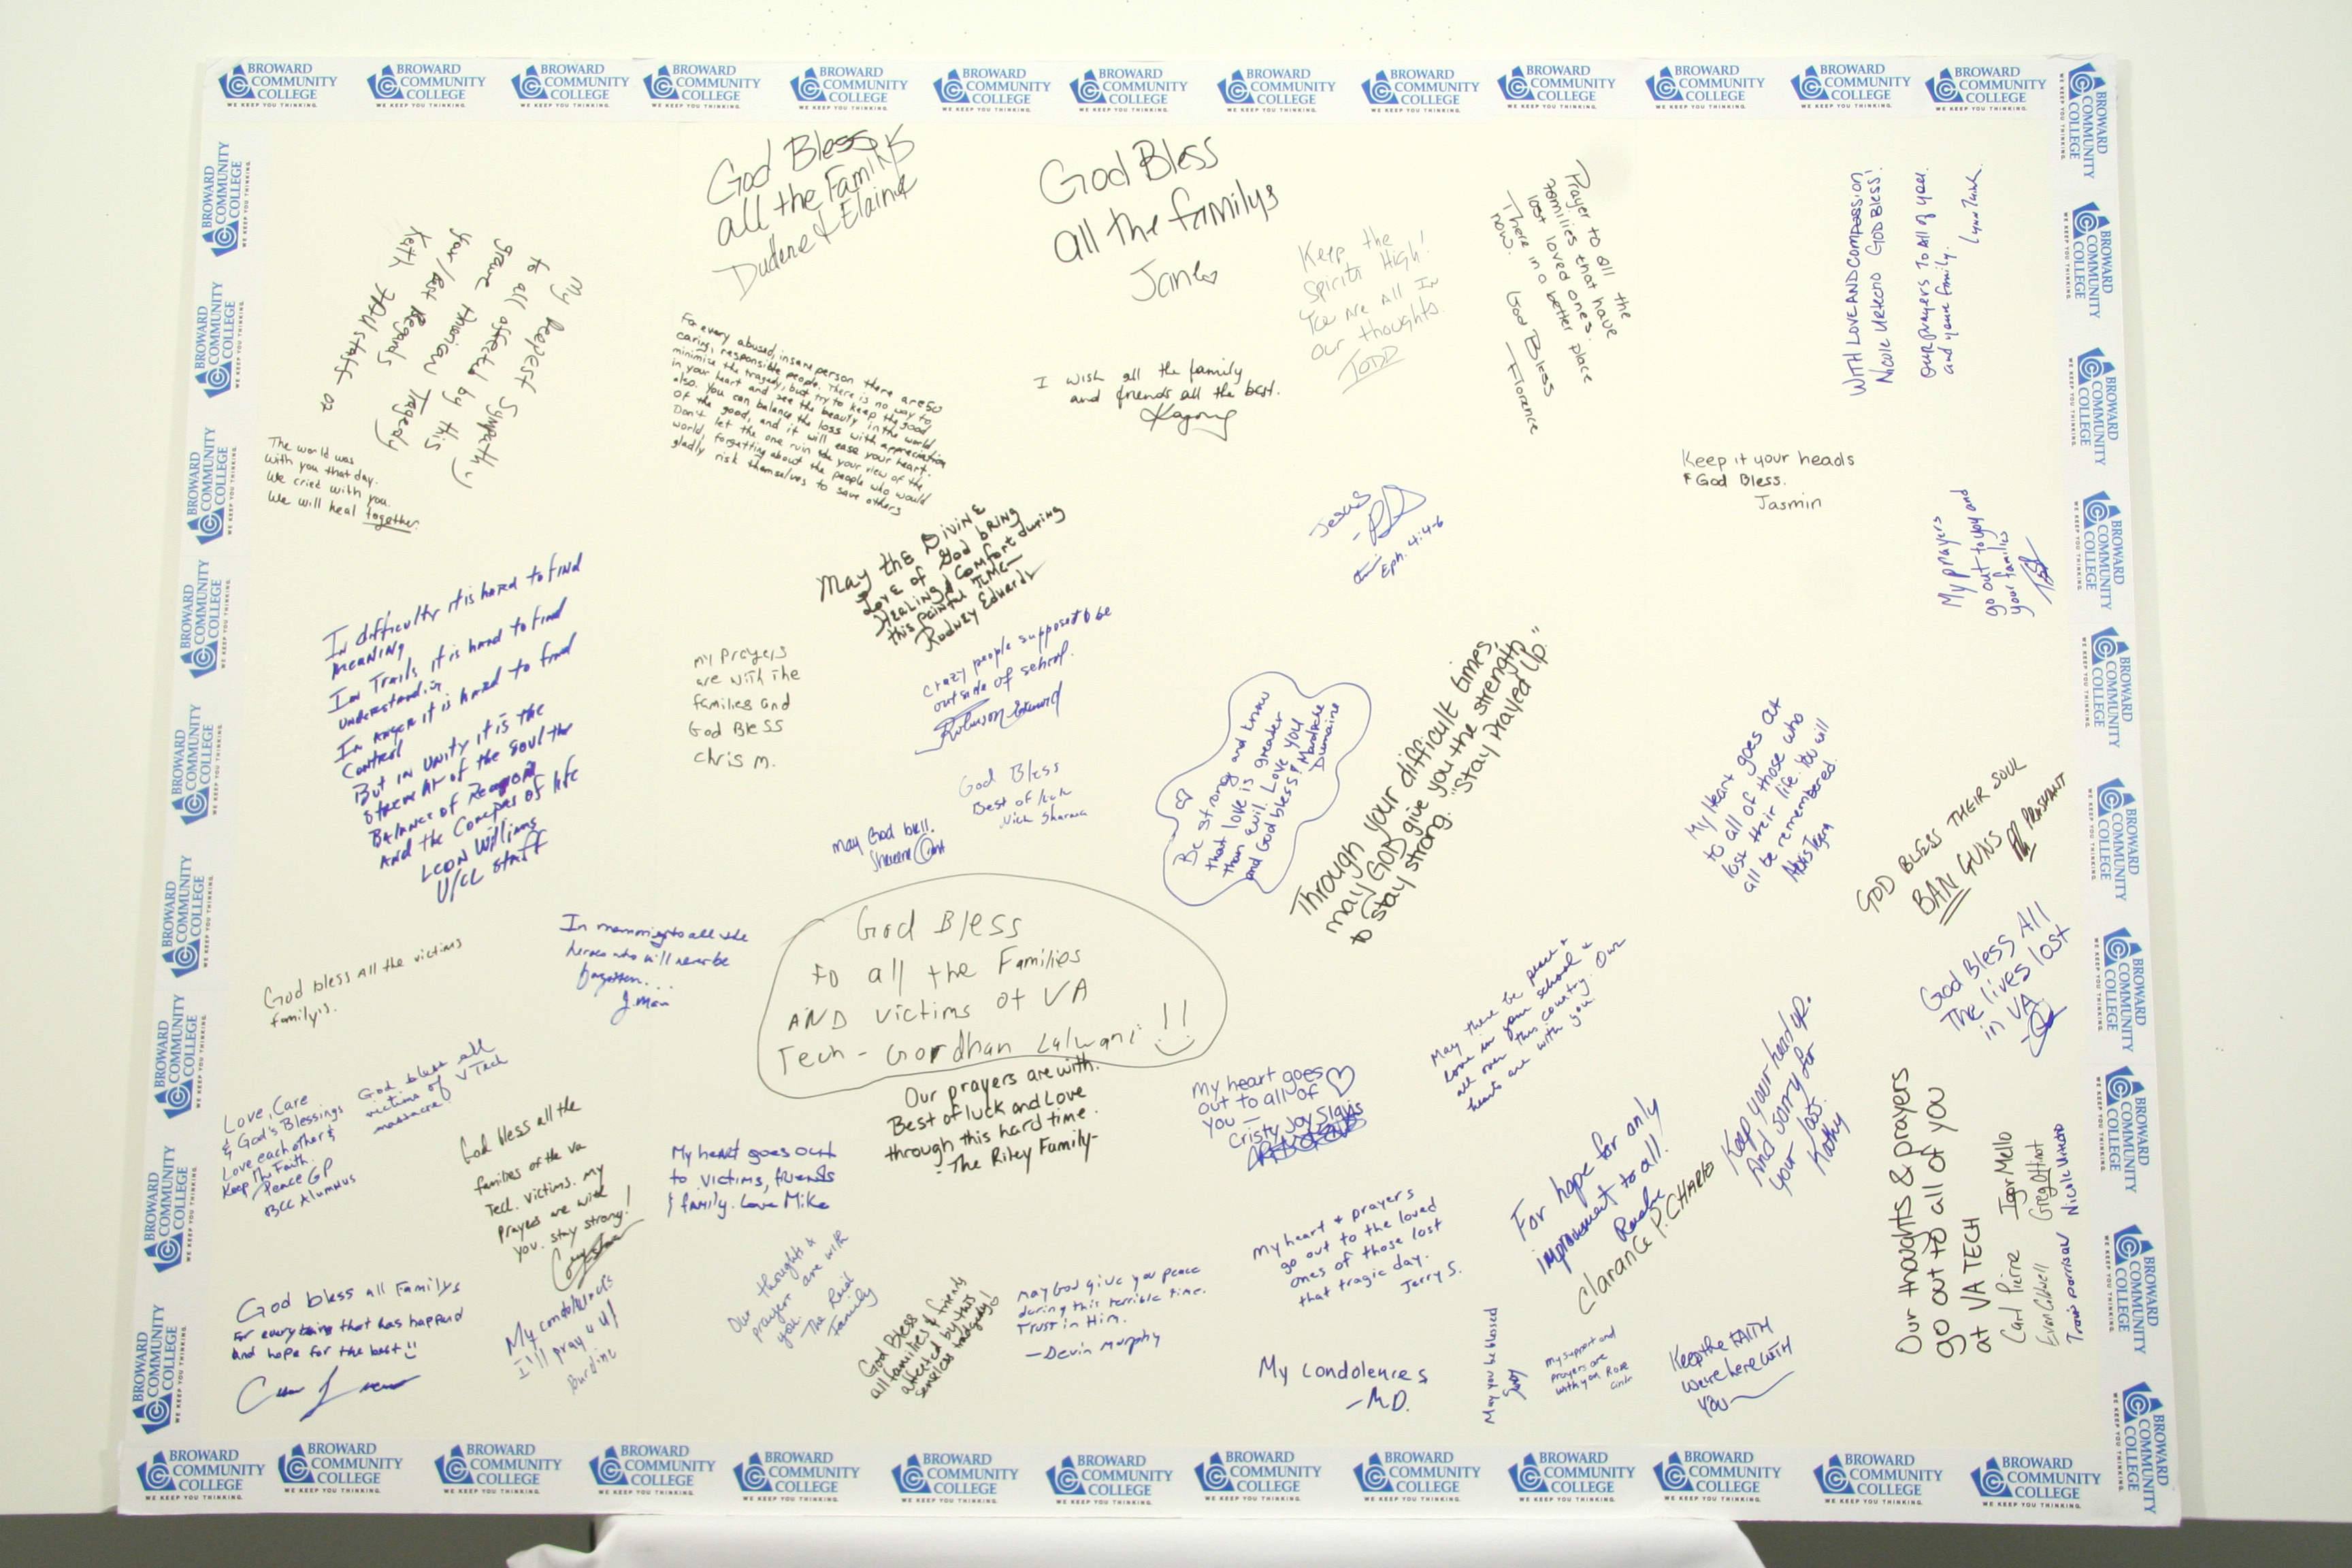 BROWARD
COMMUNITY
COLLEGE
WE KEEP YOU THINKING.
God Bless
all the Familys
Dudene & Elaine
God Bless
all the familys
Jane
Keep the
Spirits High!
You Are All In
our thoughts.
TODD
Prayer to all the
families that have
lost loved ones.
There in a better place
now. God Bless
-Florence
WITH LOVE AND COMPASSION
Nicole Urtecho GOD Bless!
Our prayers To All of you
and your family.
My Deepest Sympathy
to all affected by this
grave Human Tragedy
Your/Best Regards
Keith FAU Staff
For every abused, insane person there are 50
caring, responsible people. There is no way to
minimize the tragedy, but try to keep the good
in your heart and see the beauty in the world
also. You can balance the loss with appreciation
of the good, and it will ease your heart.
Don't let the one ruin the your view of the
world, forgetting about the people who would
gladly risk themselves to save others
I wish all the family
and friends all the best.
The world was
with you that day.
We cried with you.
We will heal together.
Keep it your heads
& God Bless.
Jasmin
Jesus
Eph. 4:4-6
My prayers
go out to you and
your families
May the Divine
Love of God bring
Healing & Comfort during
this painful TIME—
Rodney Edwards
In difficulty it is hard to find
meaning
In Trails it is hard to find
understanding
In anger it is hard to find
Control
But in unity it is the
Balance of Reason
And the Compas of life
Leon Williams
U/CL staff
my Prayers
are with the
families and
God Bless
Chris M.
crazy people supposed to be
outside of school.
God Bless
Best of luck
Nick Sharma
may God bless.
Be strong and know
that love is greater
than evil. Love you
and God bless! Mardoche
Dumaine
Through your difficult times,
may GOD give you the strength
to stay strong. "Stay Prayed Up."
My Heart goes out
to all of those who
lost their life. You will
all be remembered.
GOD BLESS THEIR SOUL
BAN GUNS
PRASHANT
God Bless All
The lives lost
in VA
In memory to all the
heroes who will never be
forgotten...
J. Man
God Bless
to all the Families
AND victims of VA
Tech - Gordhan Lalwani !!
God bless All the victims
family's.
May there be peace &
love in your school &
all over this country. Our
hearts are with you.
God bless all
victims of V Tech
massacre!
Love, Care
& God's Blessings
Love each other &
Keep The Faith.
Peace GP
BCC Alumnus
God bless all the
families of the va
Tech. victims. my
prayers are with
you. stay strong!
Our prayers are with.
Best of luck and Love
through this hard time.
-The Riley Family-
My heart goes
out to all of
you —
Cristy Joy Slavis
My heart goes out
to victims, friends
& family. Love Mike
For hope for only
improvement to all!
Clarance P. CHARLES
Keep your head up.
And sorry for
your loss.
Kathy
Our thoughts & prayers
go out to all of you
at VA TECH
Igor Mello
Carl Pierre
Evan Caldwell
Travis Morrison
My heart & prayers
go out to the loved
ones of those lost
that tragic day.
Jerry S.
God bless all Familys
For everything that has happend
and hope for the best
My condolences
I'll pray 4 u!
Burdine
Our thoughts &
prayers are with
you.
The Reid
Family
God Bless
all families & friends
affected by this
senseless tradgedy!
may God give you peace
during this terrible time.
Trust in Him.
—Devin Murphy
My condolences
-M.D.
May you be blessed
My support and
prayers are
with you
Keep the FAITH
We're here WITH
YOU